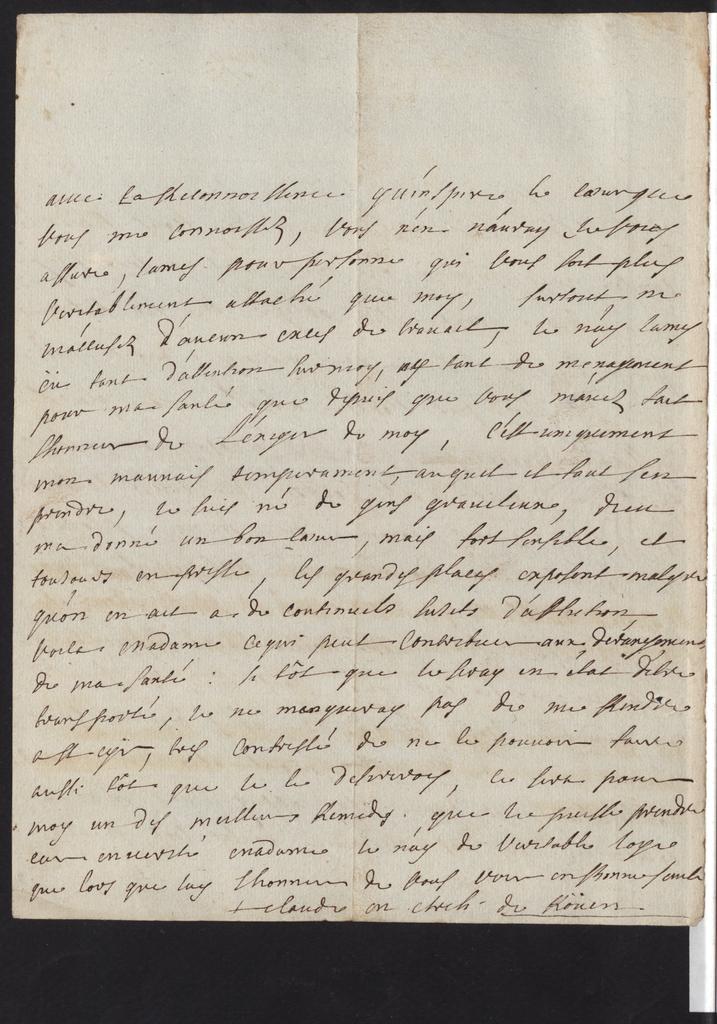 avec la Reconnoissance qu'inspire le cœur que
vous me connoissez, vous n'en n'auray je vous
assure, jamès pour personne qui vous soit plus
veritablement attaché que moy, surtout ne
m'accusez d'aucun excès de travail, je n'ay jamès
eu tant d'attention sur moy, ny tant de menagement
pour ma santé que depuis que vous m'avez fait
l'honneur de l'exiger de moy, c'est uniquement
mon mauvais temperament, auquel il faut s'en
prendre, je suis né de gens graveleux, dieu
ma donné un bon cœur, mais fort sensible, et
toujours en presse, les grandes places exposent malgré
qu'on en ait a de continuels sujets d'affliction,
voila madame ce qui peut contribuer aux dérangemens
de ma santé : si tôt que je seray en état d'être
transporté, je ne manqueray pas de me Rendre
a st cyr, tres contristé de ne le pouvoir faire
aussi tôt que je le desirerois, ce sera pour
moy un des meilleurs Remedes que je puisse prendre
car en verité madame je n'ay de veritable joye
que lors que jay l'honneur de vous voir en bonne santé
+ claude en arch. de Roüen